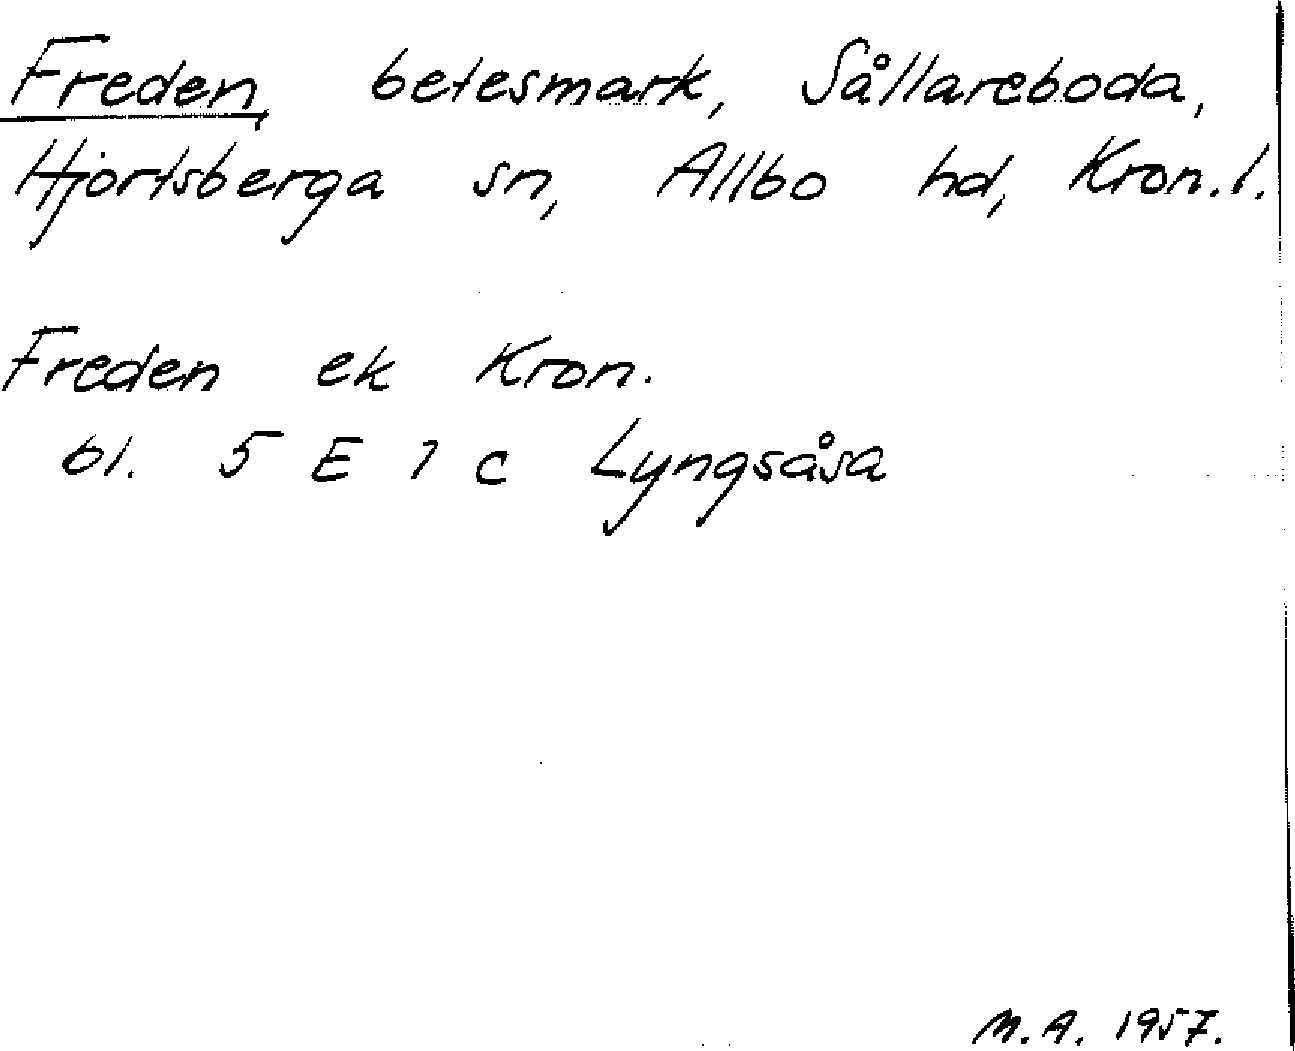 Freden, betesmark, Sållareboda,
Hjortsberga sn, Allbo hd, Kron. l.
Freden ek Kron.
bl. 5 E 1 c Lyngsåsa
M. A. 1957.